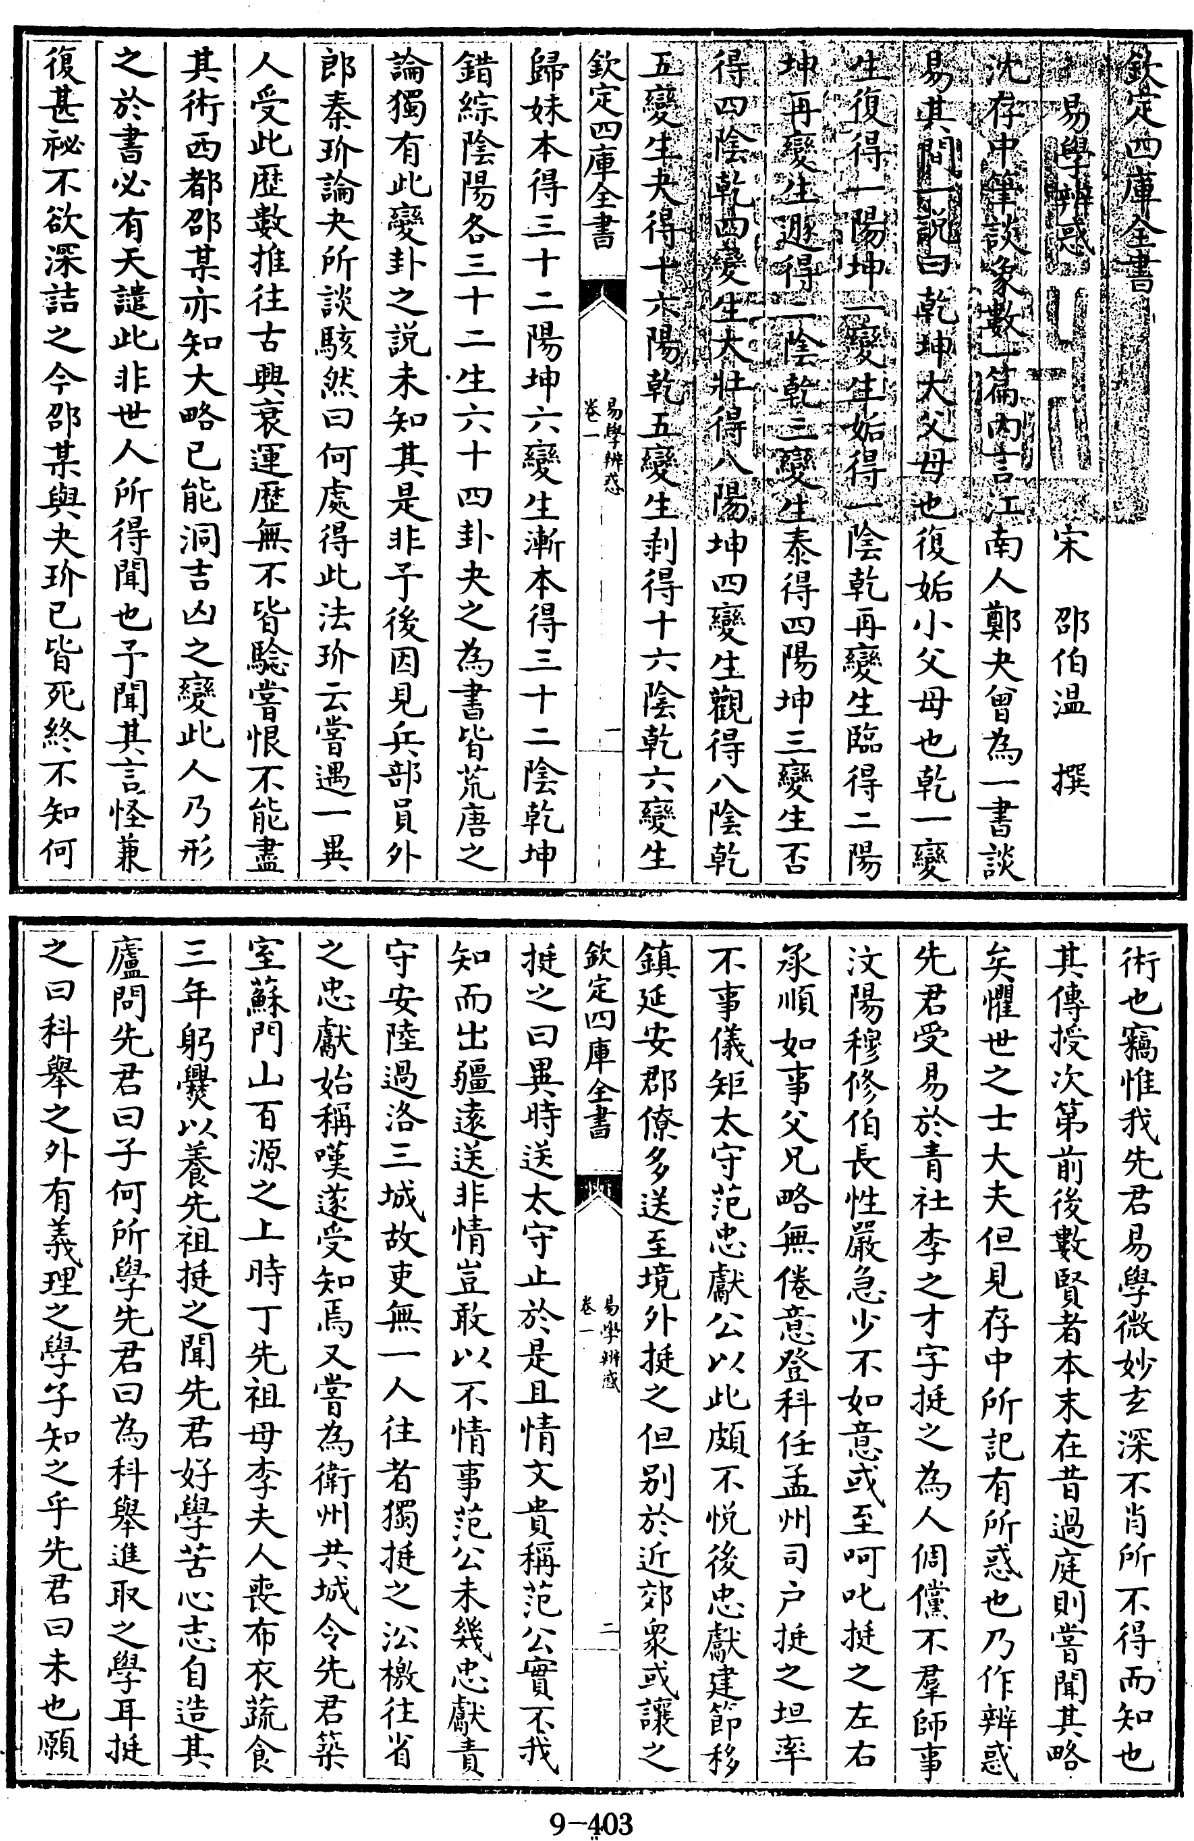 欽定四庫全書
易學辨惑
宋 邵伯溫 撰
沈存中筆談象數一篇內言江南人鄭夬曾為一書談
易其間一説曰乾坤大父母也復姤小父母也乾一變
生復得一陽坤一變生姤得一陰乾再變生臨得二陽
坤再變生遯得二陰乾三變生泰得四陽坤三變生否
得四陰乾四變生大壯得八陽坤四變生觀得八陰乾
五變生夬得十六陽乾五變生剥得十六陰乾六變生
欽定四庫全書
易學辨惑
卷一
一
歸妹本得三十二陽坤六變生漸本得三十二陰乾坤
錯綜陰陽各三十二生六十四卦夬之為書皆荒唐之
論獨有此變卦之説未知其是非予後因見兵部員外
郎秦玠論夬所談駭然曰何處得此法玠云嘗遇一異
人受此歷數推往古興衰運歷無不皆驗嘗恨不能盡
其術西都邵某亦知大略已能洞吉凶之變此人乃形
之於書必有天譴此非世人所得聞也予聞其言怪兼
復甚祕不欲深詰之今邵某與夬玠已皆死終不知何
術也竊惟我先君易學微妙玄深不肖所不得而知也
其傳授次第前後數賢者本末在昔過庭則嘗聞其略
矣懼世之士大夫但見存中所記有所惑也乃作辨惑
先君受易於青社李之才字挺之為人倜儻不羣師事
汶陽穆修伯長性嚴急少不如意或至呵叱挺之左右
承順如事父兄略無倦意登科任孟州司户挺之坦率
不事儀矩太守范忠獻公以此頗不悦後忠獻建節移
鎮延安郡僚多送至境外挺之但别於近郊衆或讓之
欽定四庫全書
易學辨惑
卷一
二
挺之曰異時送太守止於是且情文貴稱范公實不我
知而出疆遠送非情豈敢以不情事范公未幾忠獻責
守安陸過洛三城故吏無一人往者獨挺之㳂檄往省
之忠獻始稱嘆遂受知焉又嘗為衛州共城令先君築
室蘇門山百源之上時丁先祖母李夫人喪布衣蔬食
三年躬爨以養先祖挺之聞先君好學苦心志自造其
廬問先君曰子何所學先君曰為科舉進取之學耳挺
之曰科舉之外有義理之學子知之乎先君曰未也願
9-403